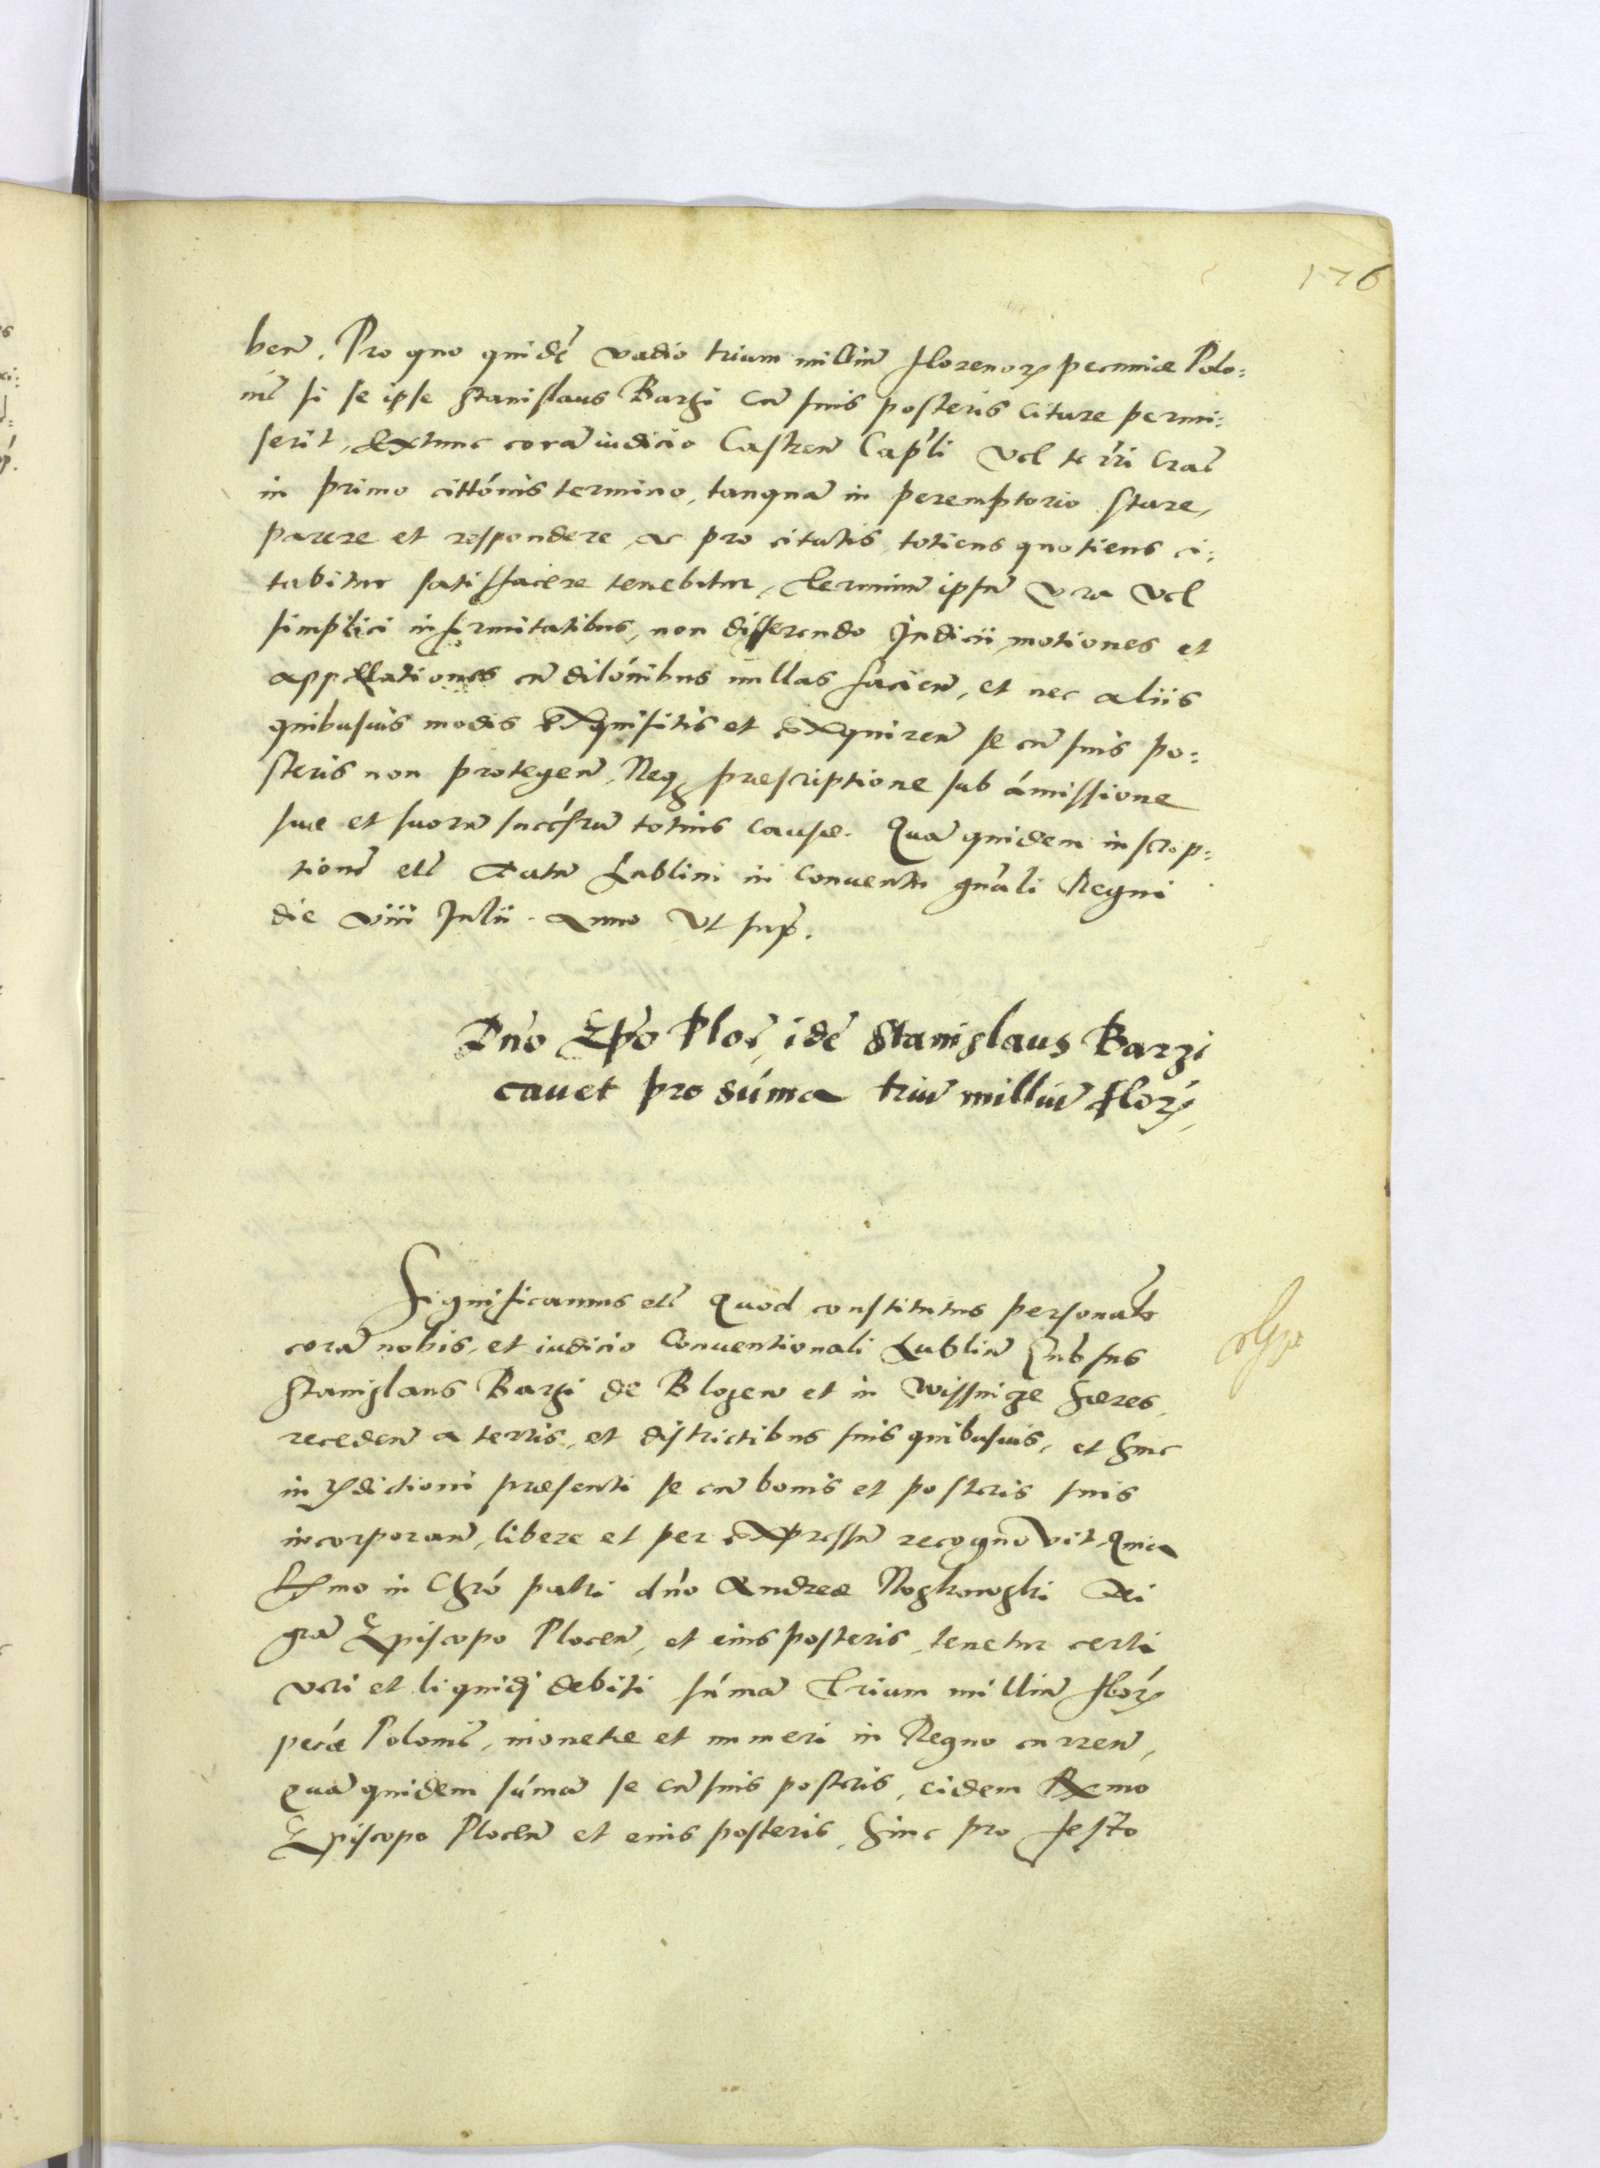 176
ben̄. Pro quo quidē vadio trium milliū florenoꝝ pecuniæ Polo:
niē si se ipse Stanislaus Barzi cū suis posteris citare permi:
serit, Extunc corā iudicio Castren̄ Capli vel terri Crac̄
in primo cittónis termino, tanquā in peremptorio stare,
parere et respondere, ac pro citatis totiens quotiens ci:
tabitur satisfacere tenebitur, Terminū ipsū vera vel
simplici infirmitatibus, non differendo Judicii motiones et
appellationes cū dilónibus nullas facien̄, et nec aliis
quibusuis modis exquisitis et exquiren̄ se cū suis po:
steris non protegen̄, Neqꝫ præscriptione sub ámissione
suæ et suorū succésrū totius causæ. Quā quidem inscrip:
tionē etc̄ Datū Lublini in conuentu gnáli Regni
die viii Julii. Anno Vt supr̄.
Dno Epo Ploc̄, idē Stanislaus Barzi
cauet pro súma triū milliū floꝝ,
Significamus etc̄ Quod constitutus personal̄r
corā nobis, et iudicio Conuentionali Lublin̄ Gnbsus
Stanislaus Barzi de Blozew et in Wissnicze hæres,
receden̄ a terris, et districtibus suis quibusuis, et huic
iurꝫdictioni præsenti se cū bonis et posteris suis
incorporan̄, libere et per expressū recognovit, Quia
Rmo in Chró patri dno Andreæ Noskowski Dei
gra Episcopo Plocen̄, et eius posteris, tenetur certi
veri et liquidi debiti súmā Trium milliū floꝝ
pecæ Poloniē, monetæ et numeri in Regno curren̄,
quā quidem súmā se cū suis posteris, eidem Rmo
Episcopo Plocen̄ et eius posteris, hinc pro festo